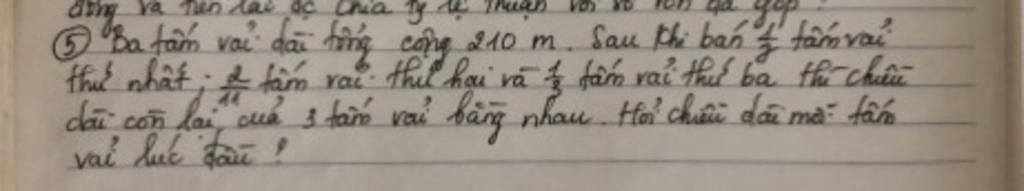 đồng và tiền lãi được chia tỷ lệ thuận với số vốn đã góp.
⑤ Ba tấm vải dài tổng cộng 210 m. Sau khi bán 1/7 tấm vải
thứ nhất; 2/11 tấm vải thứ hai và 1/3 tấm vải thứ ba thì chiều
dài còn lại của 3 tấm vải bằng nhau. Hỏi chiều dài mỗi tấm
vải lúc đầu?